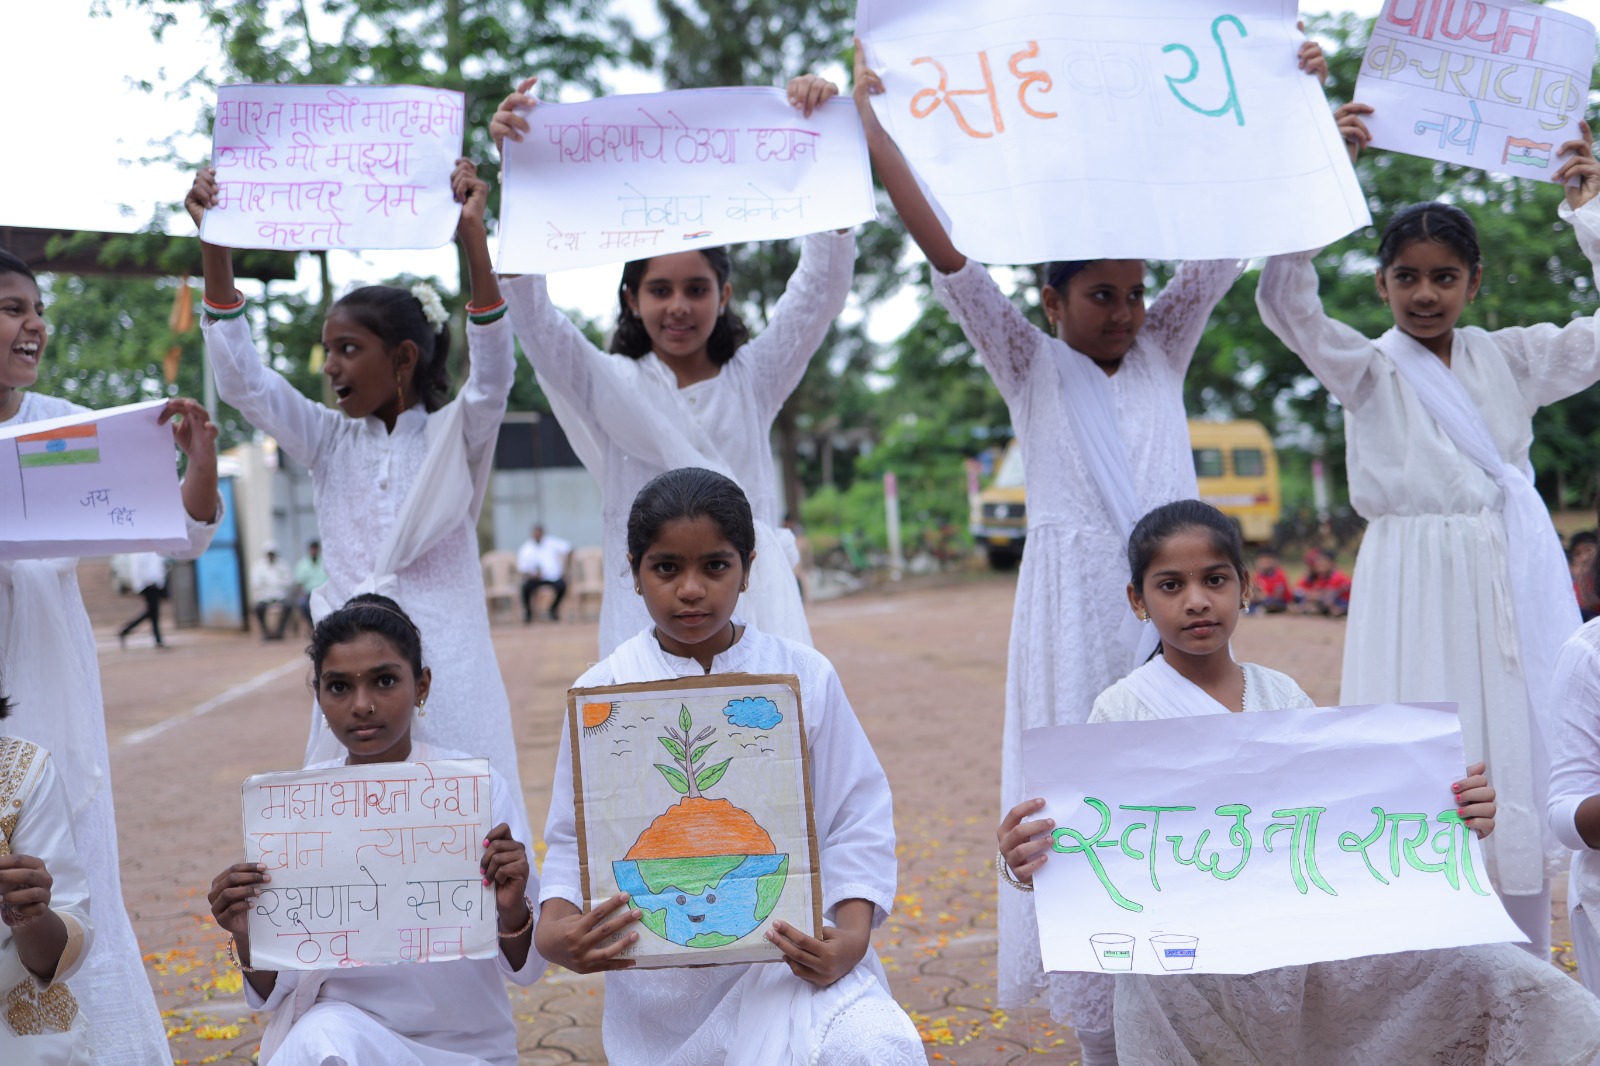 भारत माझी मातृभूमी
आहे मी माझ्या
भारतावर प्रेम
करतो
पर्यावरणाचे ठेऊया ध्यान
तेव्हाच बनेल
देश महान
सहकार्य
पाण्यात
कचरा टाकु
नये
जय
हिंद
माझा भारत देश
छान त्याच्या
रक्षणाचे सदा
ठेवू भान
स्वच्छता राखा